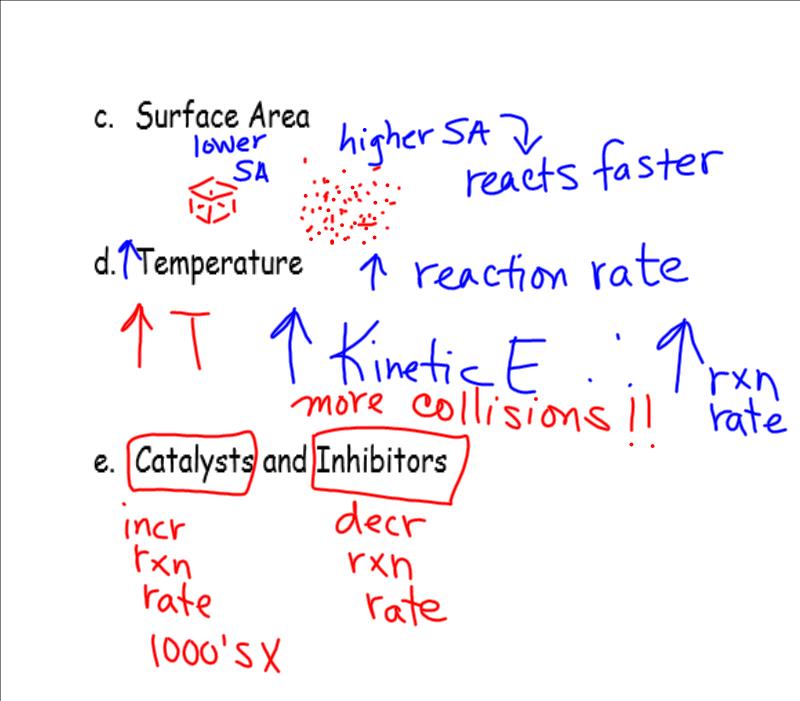 c. Surface Area
lower
SA
higher SA ↷
reacts faster
d. ↑Temperature
↑ reaction rate
↑ T
↑ Kinetic E ∴ ↑ rxn
rate
more collisions !!
e. Catalysts and Inhibitors
incr
rxn
rate
1000's X
decr
rxn
rate